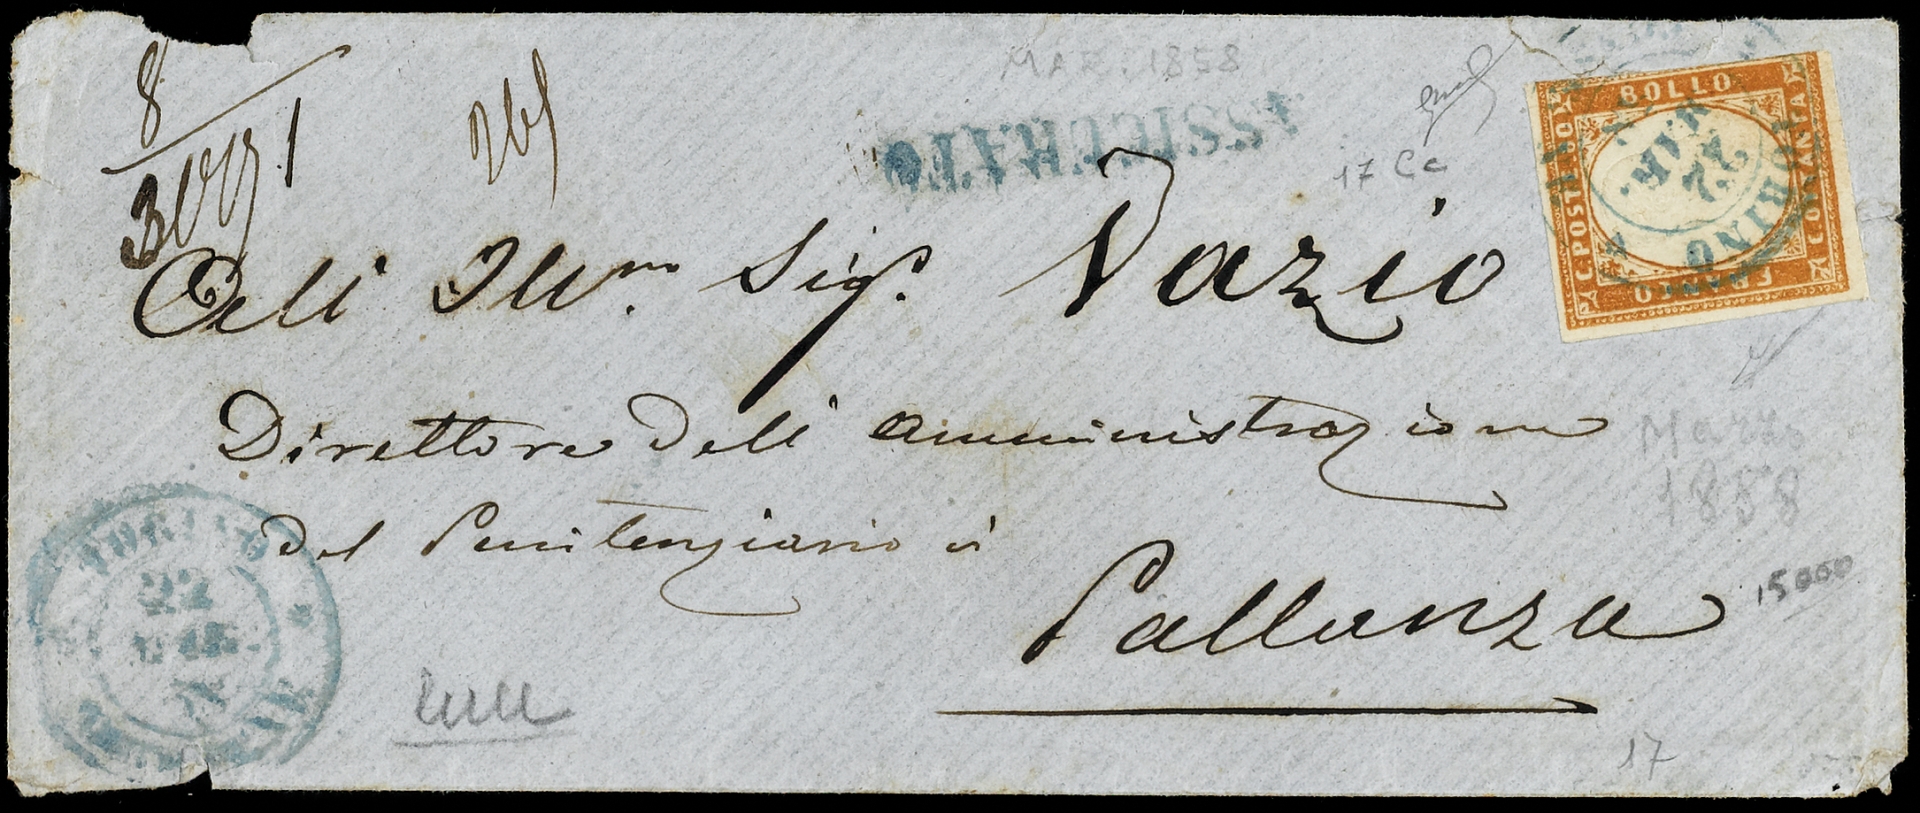 8
MAR. 1858
ASSICURATO
17 Cc
BOLLO
C. POSTALE
C. QUARANTA
FRANCO
TORINO
22
MAR
All' Ill.mo Sig.r Vazio
Direttore dell' Amministrazione
del Penitenziario di
Pallanza
Marzo
1858
15000
TORINO
22
MAR
17